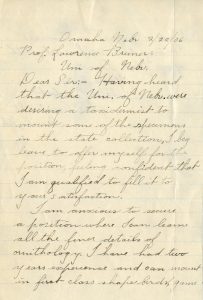 Omaha Nebr 3/22/06
Prof. Lawrence Bruner
Uni of Nebr.
Dear Sir:- Having heard
that the Uni. of Nebr. were
desiring a taxidermist to
mount some of the specimens
in the state collection, I beg
leave to offer myself for the
position, feeling confident that
I am qualified to fill it to
your satisfaction.
I am anxious to secure
a position where I can learn
all the finer details of
ornithology. I have had two
years experience and can mount
in first class shape birds, game